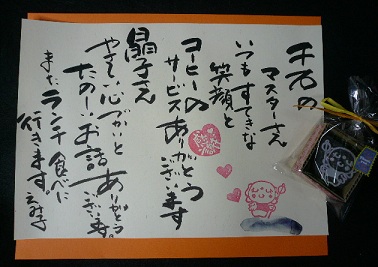 千石の
マスターさん
いつもすてきな
笑顔と
コーヒーの
サービス
ありがとう
ございます
晶子さん
やさしい心づかいと
たのしいお話
ありがとう
ございます。
また ランチ 食べに
行きます